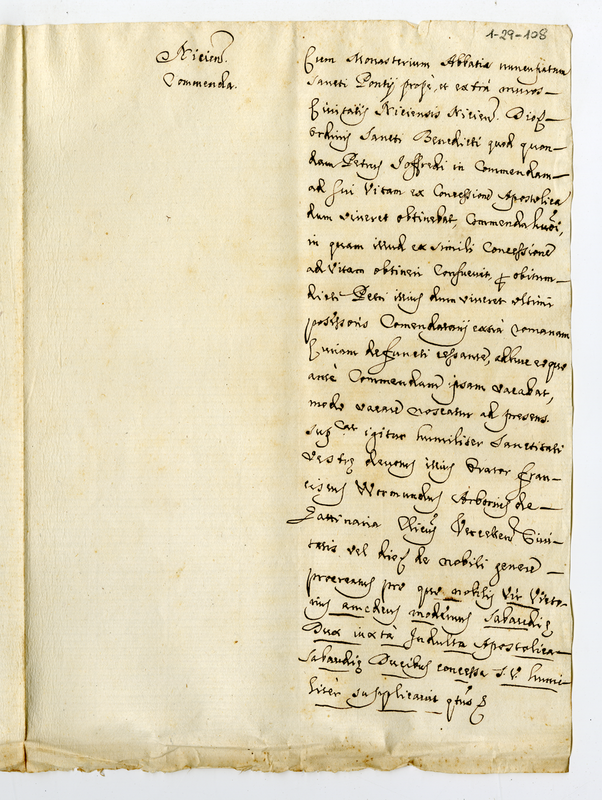 1-29-108
Nicien.
Commenda.
Cum Monasterium Abbatia nuncupatum
Sancti Pontij propè, et extrà muros
Civitatis Niciensis Nicien. Dioc.
Ordinis Sancti Benedicti quod quon-
dam Petrus Joffredi in Commendam
ad sui Vitam ex Concessione Apostolica
dum viveret obtinebat, Commenda huōi,
in quam illud ex simili Concessione
ad Vitam obtineri Consuevit, p obitum
dicti Petri illius dum viveret ultimi
possessoris Comendatarij extrà romanam
Curiam defuncti cessante, adhuc eo quo
antè Commendam ipsam vacabat,
modo vacare noscatur ad presens.
Supcat igitur humiliter Sanctitati
Vestrę devotus illius Orator Fran-
ciscus Wercundus Arborius de
Gattinaria Clicus Vercellen Civi-
tatis vel dioc. de nobili genere
procreatus pro quo nobilis Vir Victo-
rius amedeus modernus Sabaudię
Dux iuxtà Indulta Apostolica
Sabaudię Ducibus concessa S. V. humi-
liter supplicavit qtus